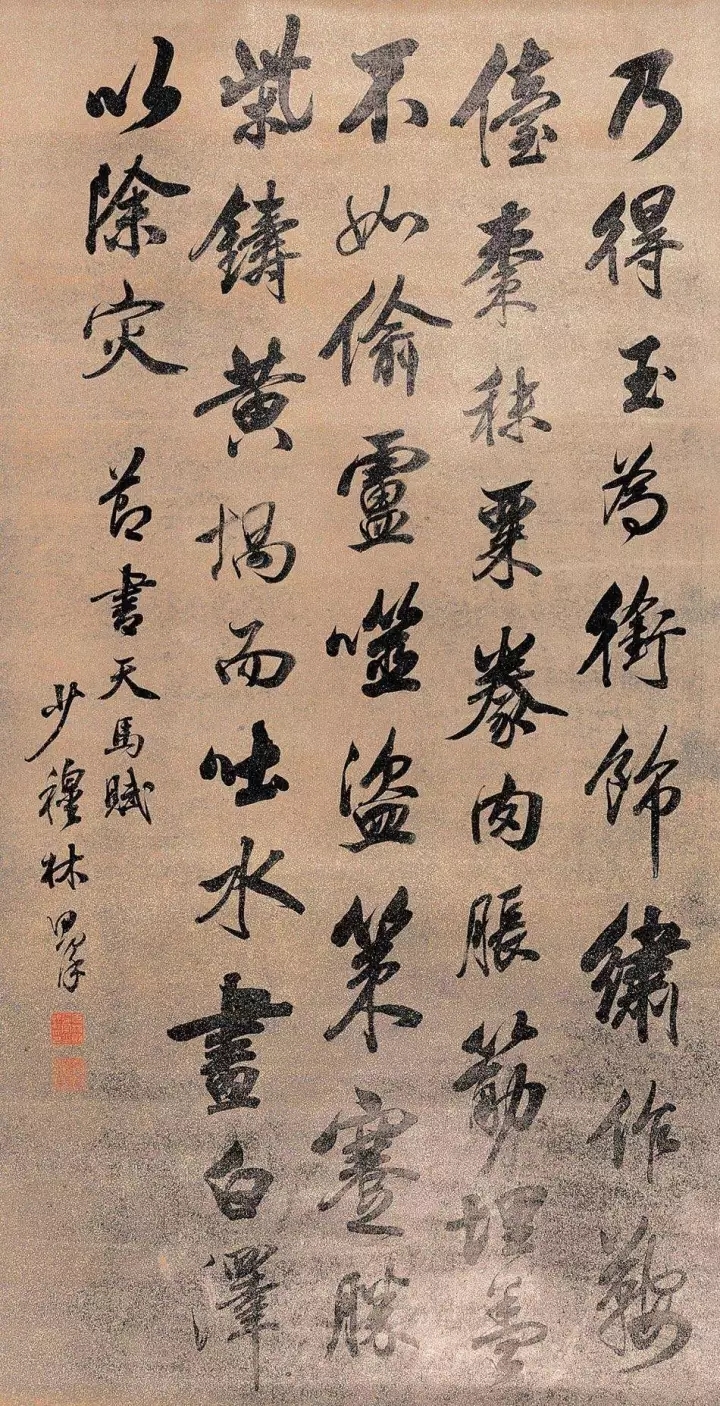 乃得玉為銜飾繡作鞍
儓棗秣粟豢肉脹筋埋盖
不如偷盧噬盜策蹇勝
柴鑄黃堝而吐水畫白澤
以除灾 節書天馬賦
少穆林則徐